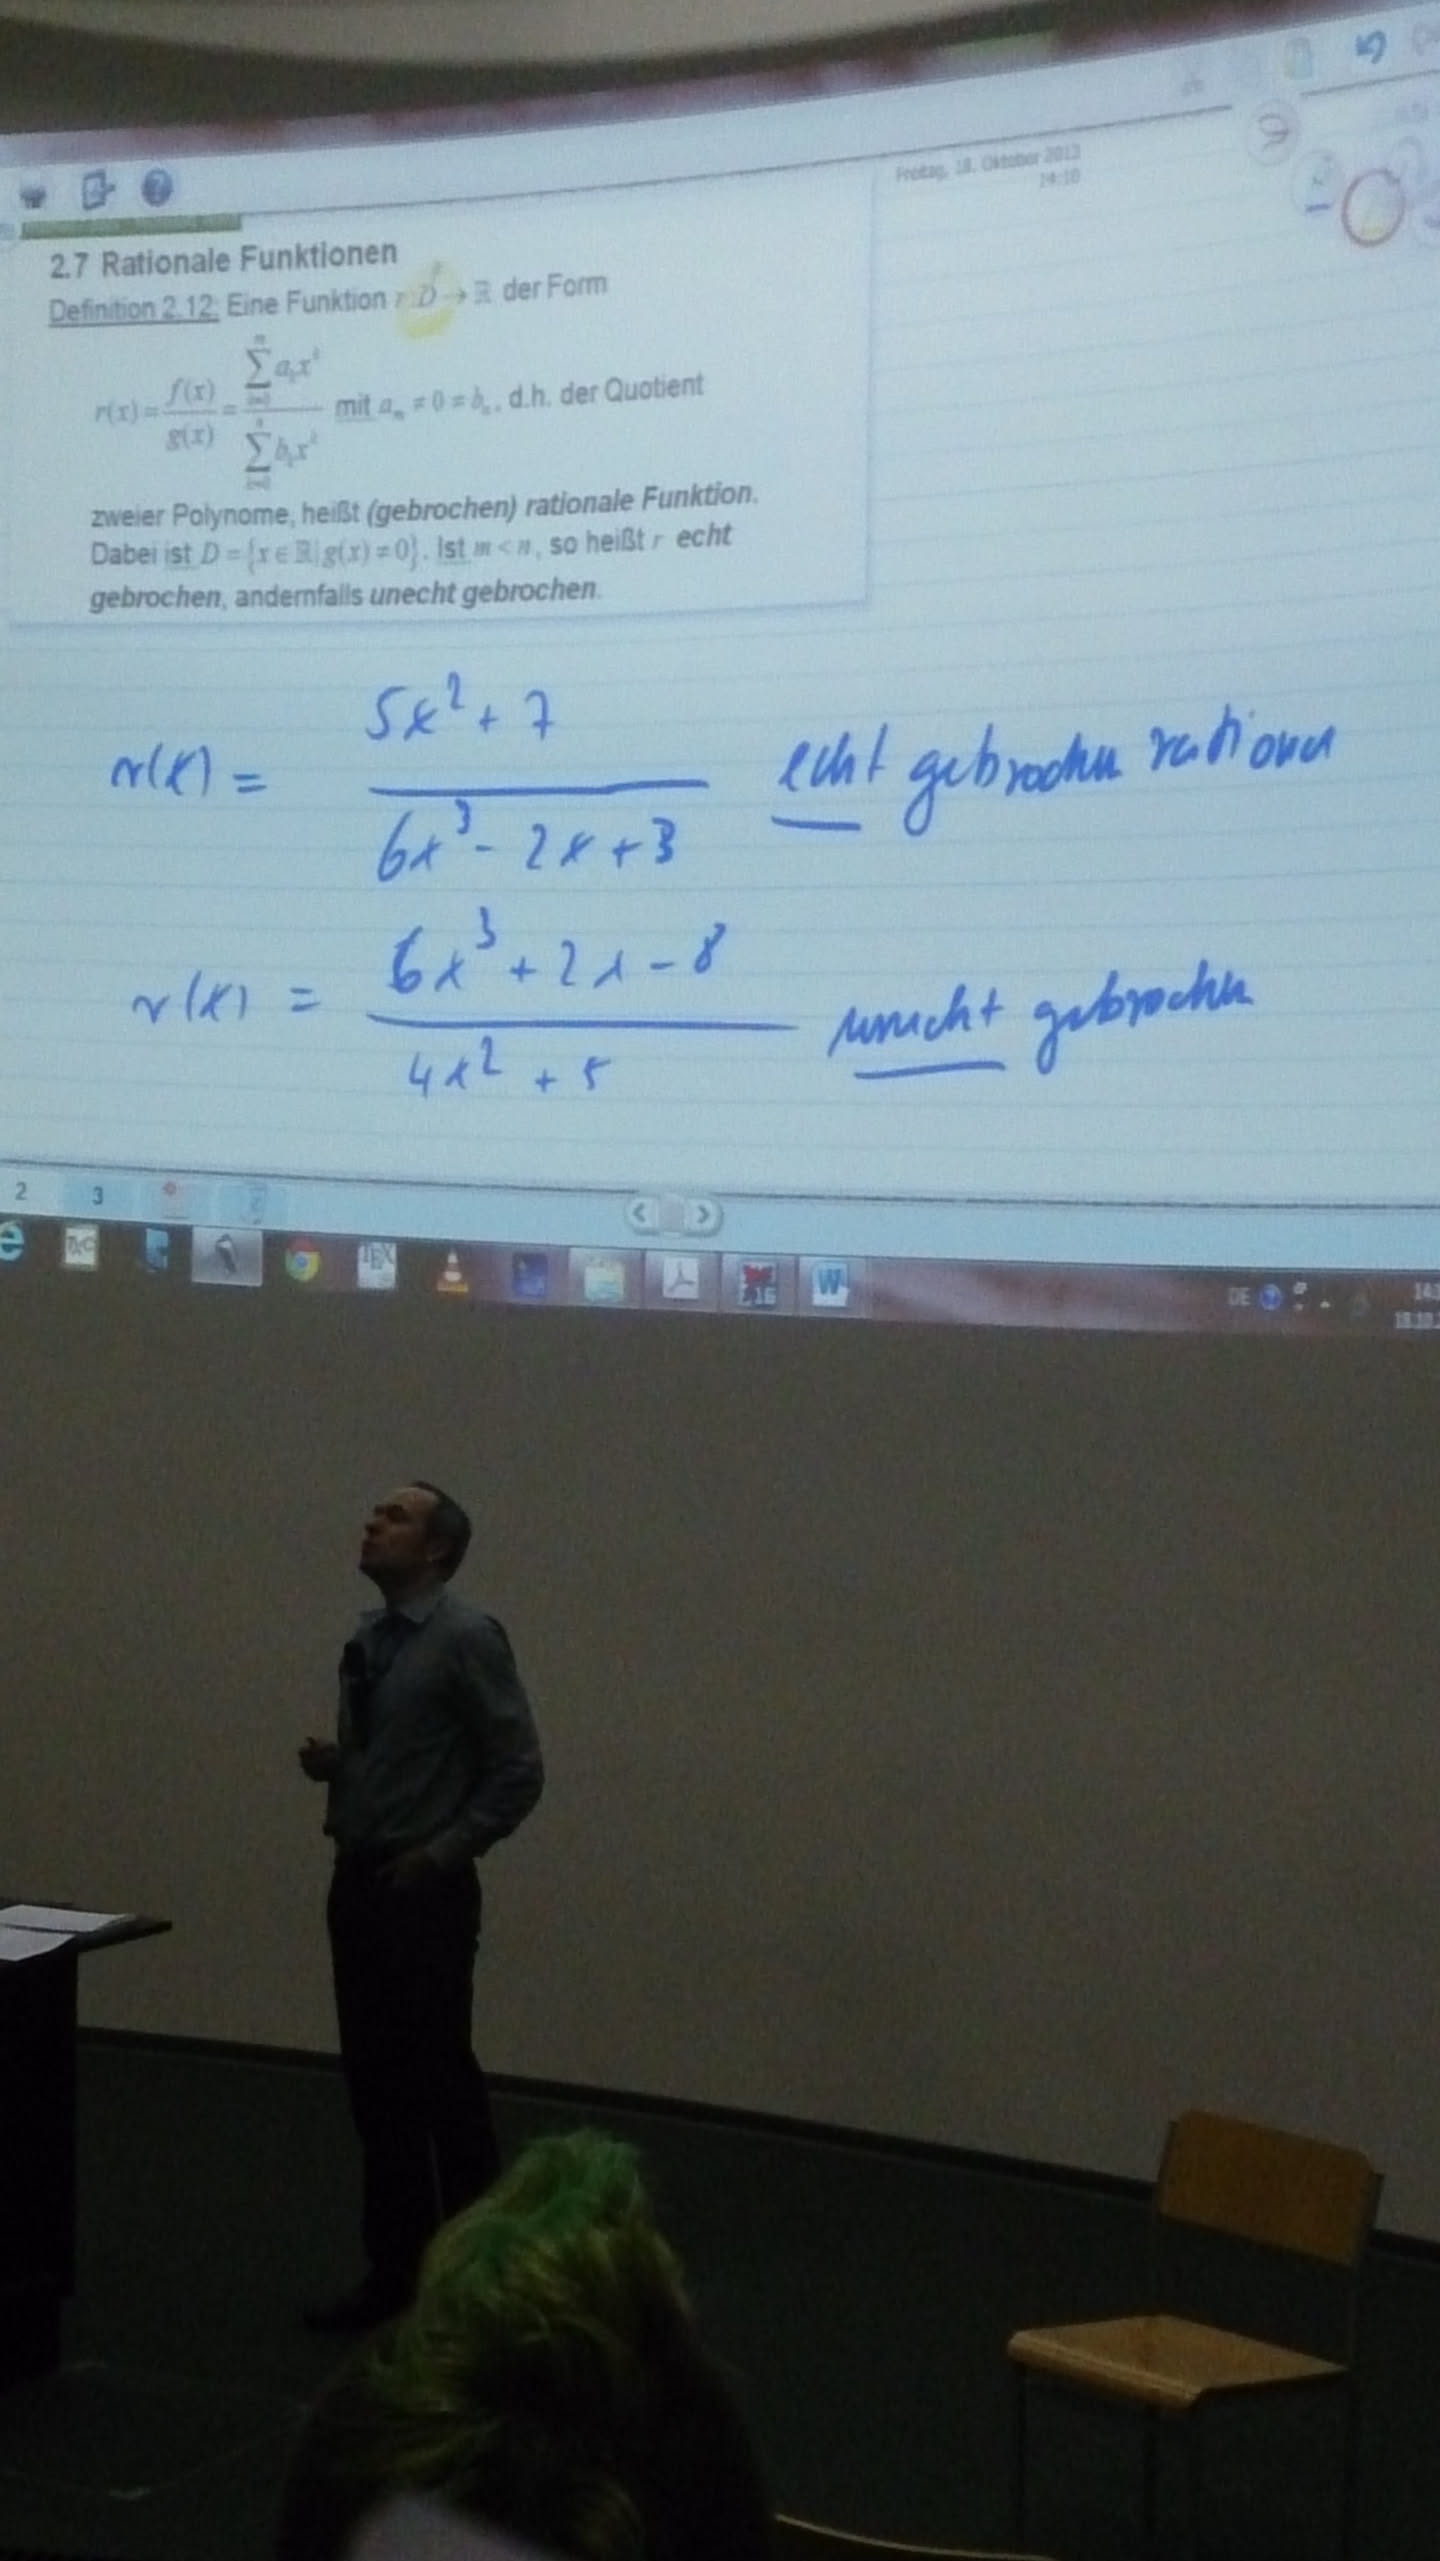 Freitag, 18. Oktober 2013
14:10
2.7 Rationale Funktionen
Definition 2.12: Eine Funktion r: D → ℝ der Form
r(x) = f(x)/g(x) = ∑ aₖxᵏ / ∑ bₖxᵏ mit aₘ ≠ 0 ≠ bₙ, d.h. der Quotient
zweier Polynome, heißt (gebrochen) rationale Funktion.
Dabei ist D = {x ∈ ℝ | g(x) ≠ 0}. Ist m < n, so heißt r echt
gebrochen, andernfalls unecht gebrochen.
r(x) = (5x² + 7) / (6x³ - 2x + 3) echt gebrochen rational
r(x) = (6x³ + 2x - 8) / (4x² + 5) unecht gebrochen
2 3
TEX
16
W
DE
18.10.